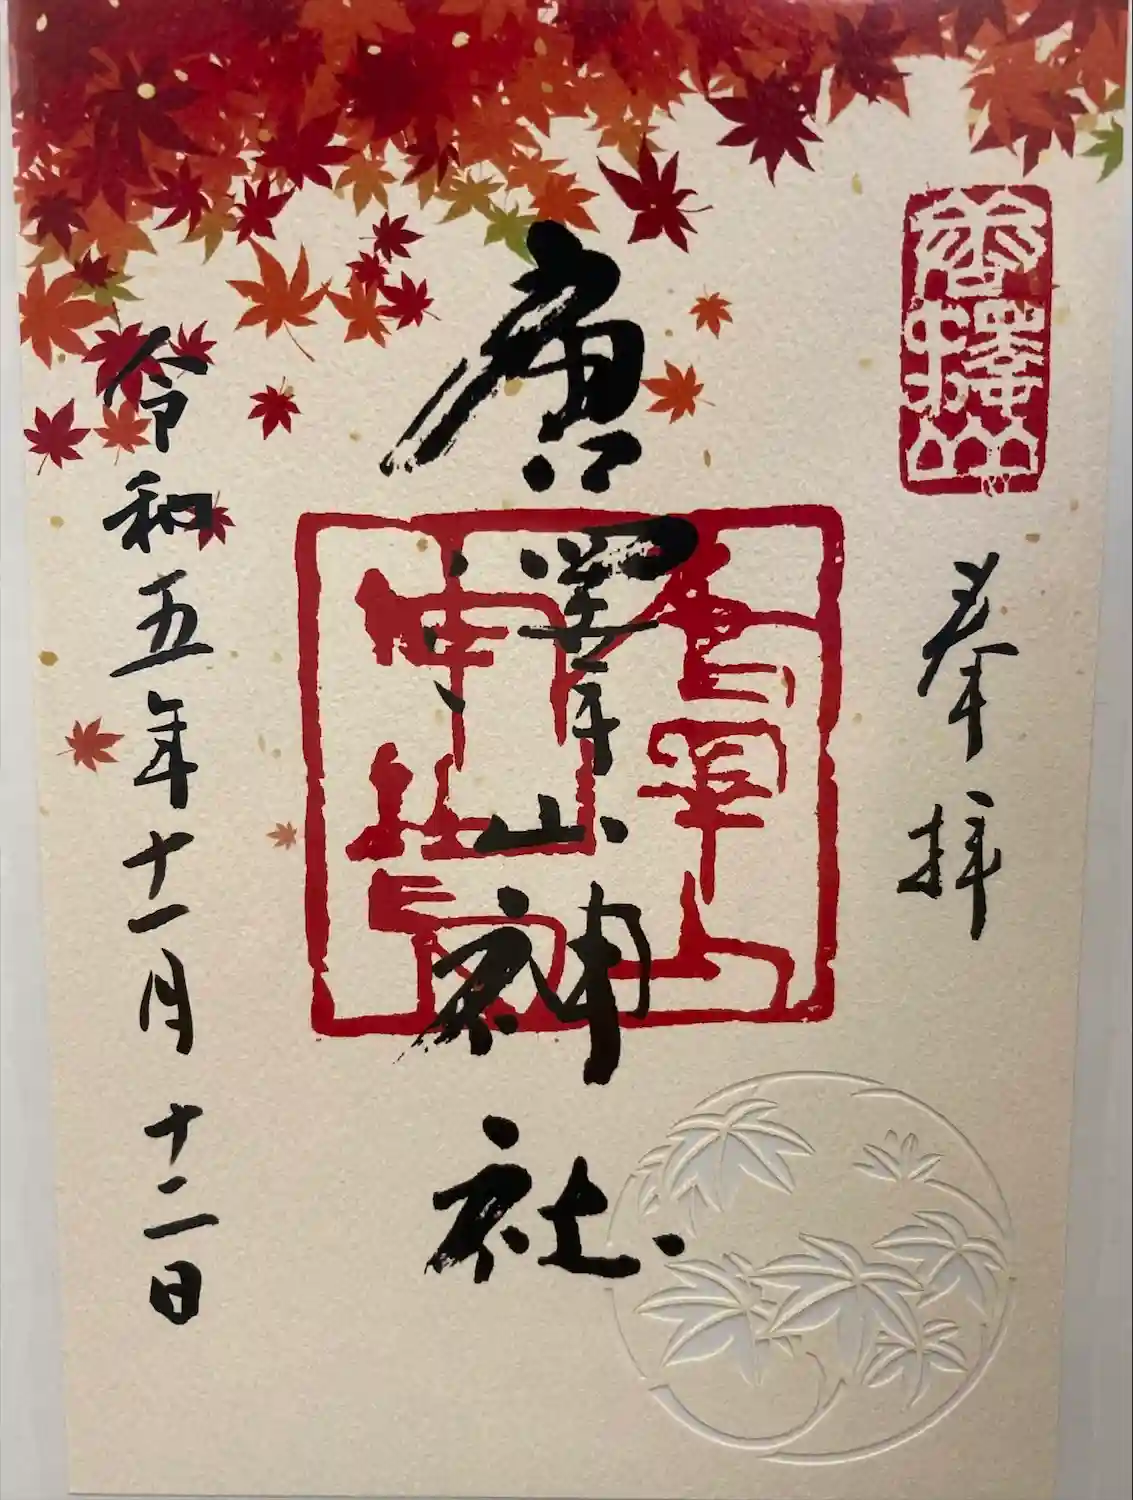 唐澤山
奉拝
唐澤山神社
唐澤山
神社印
令和五年十一月十二日